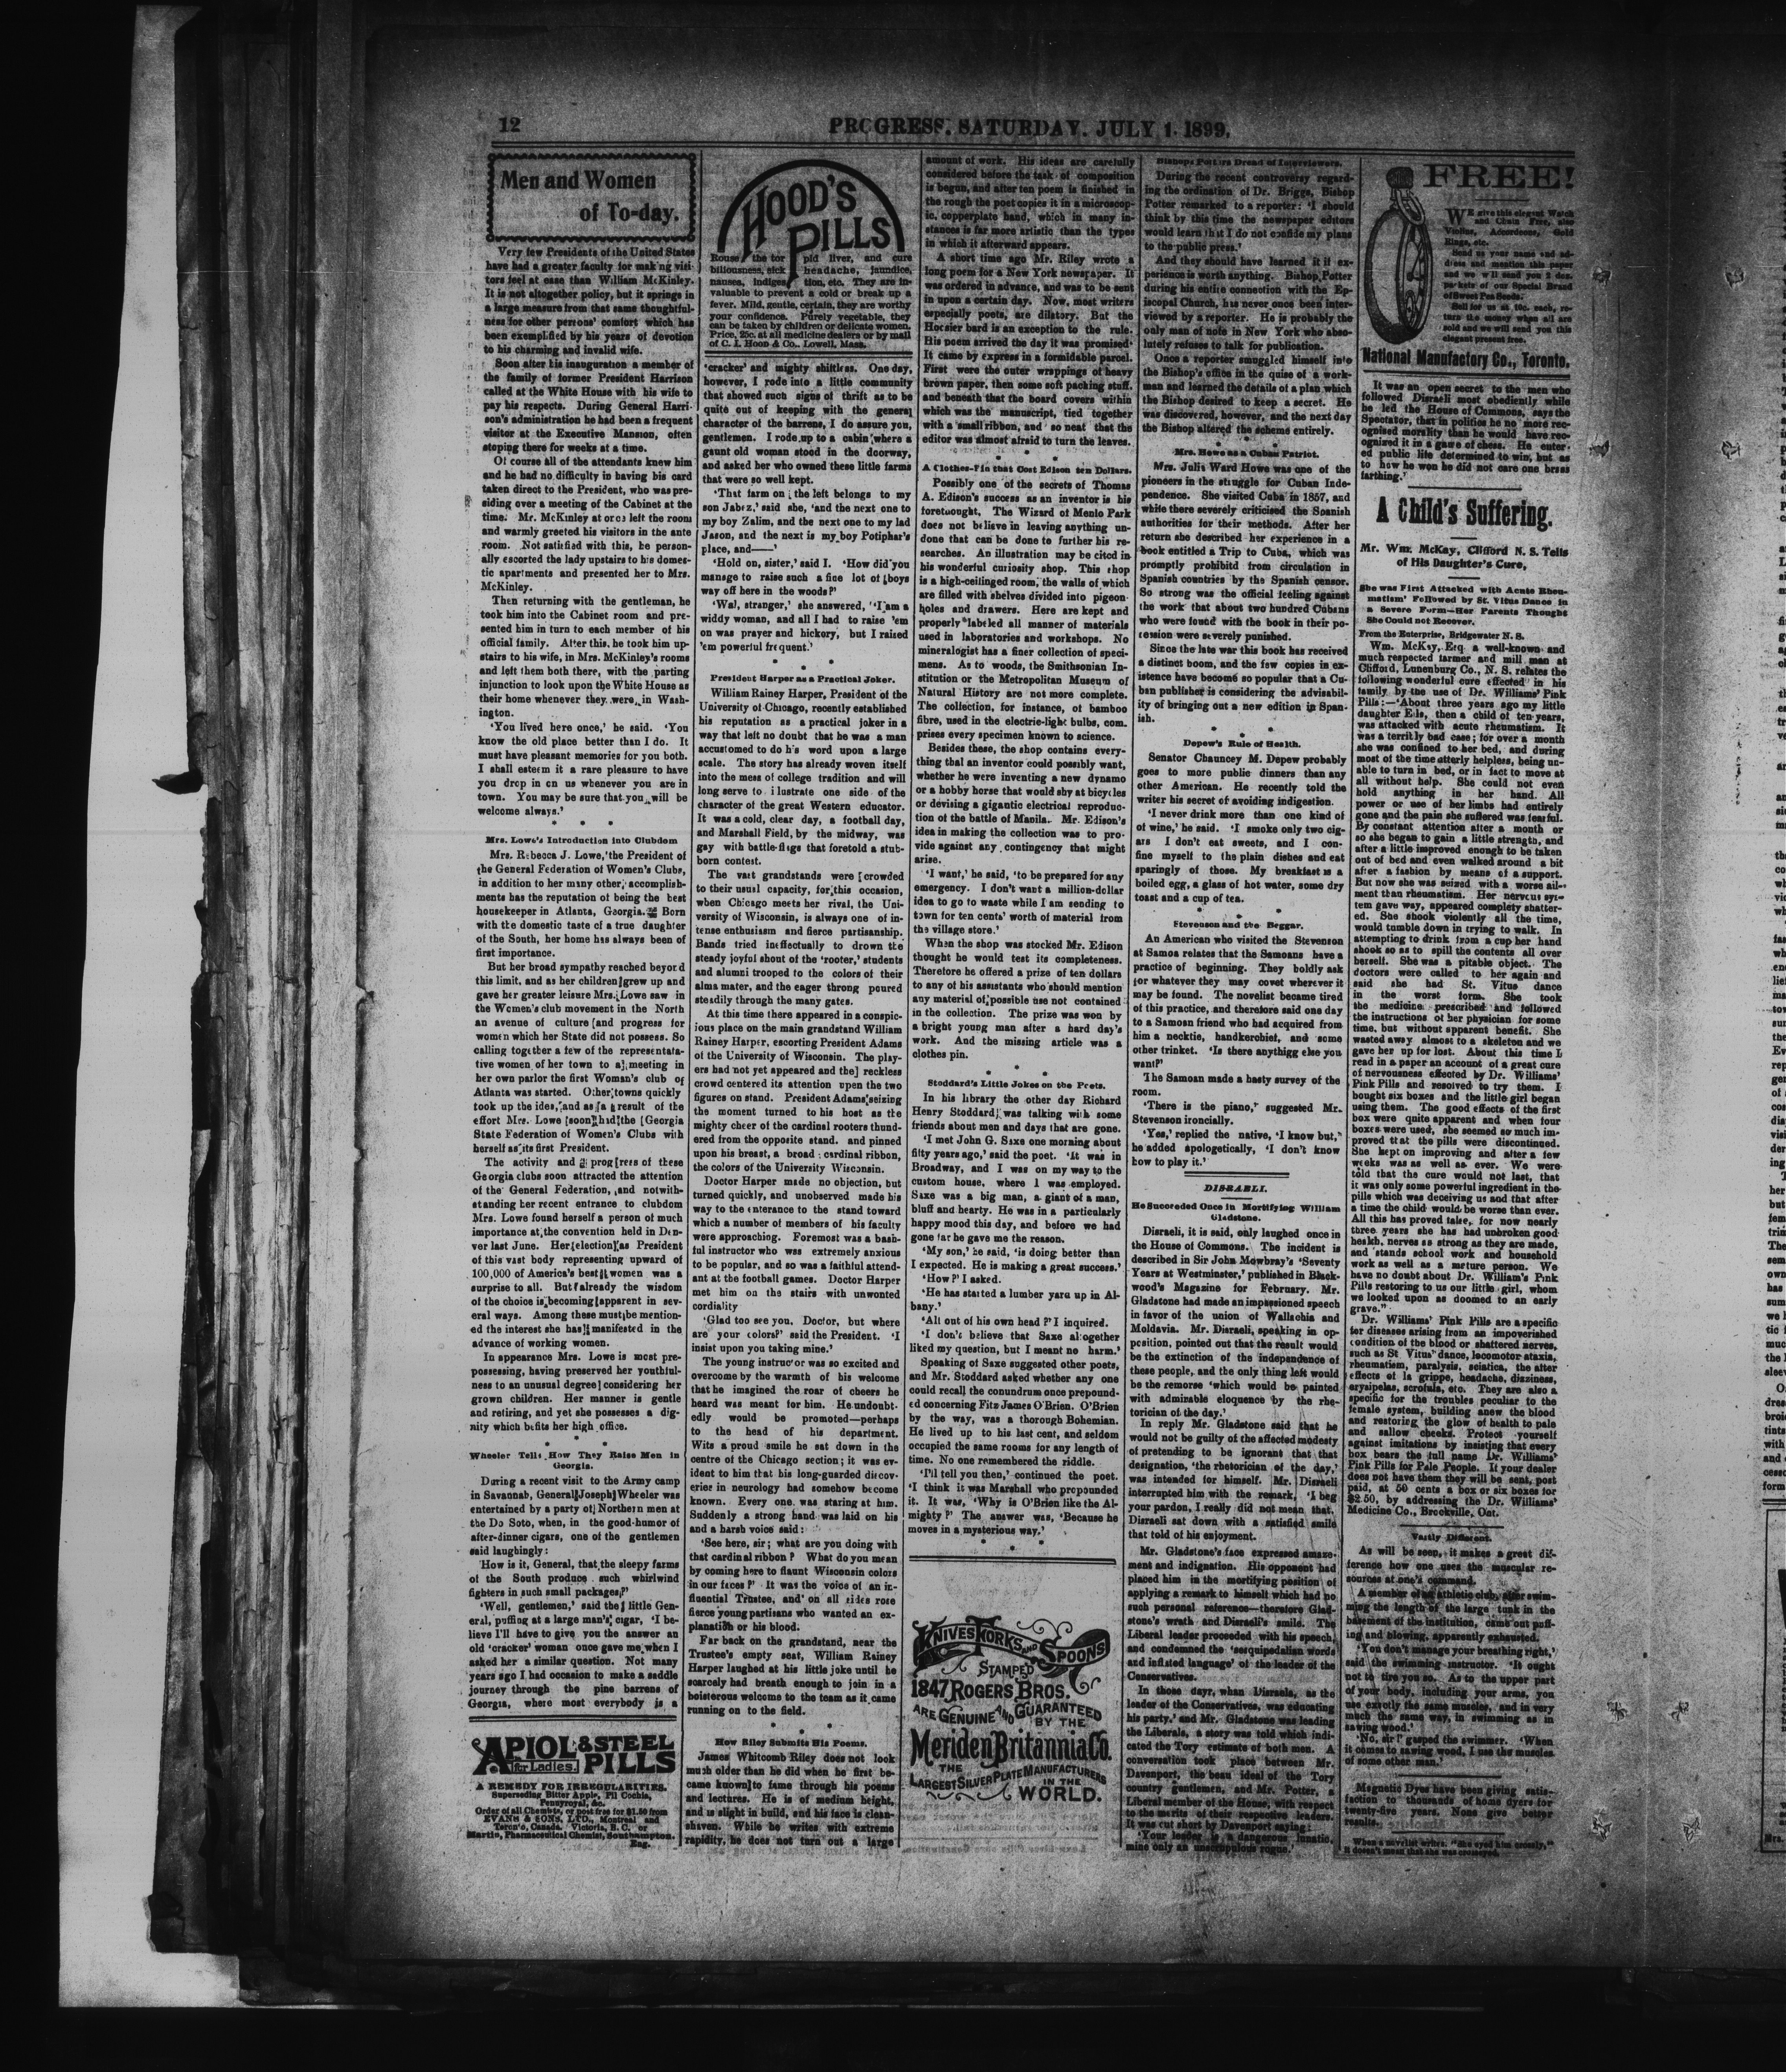 12
PROGRESS. SATURDAY. JULY 1. 1899.
Men and Women
of To-day.
Very few Presidents of the United States
have had a greater faculty for making visi-
tors feel at ease than William McKinley.
It is not altogether policy, but it springs in
a large measure from that same thoughtful-
ness for other persons' comfort which has
been exemplified by his years of devotion
to his charming and invalid wife.
Soon after his inauguration a member of
the family of former President Harrison
called at the White House with his wife to
pay his respects. During General Harri-
son's administration he had been a frequent
visitor at the Executive Mansion, often
stoping there for weeks at a time.
Of course all of the attendants knew him
and he had no difficulty in having his card
taken direct to the President, who was pre-
siding over a meeting of the Cabinet at the
time. Mr. McKinley at once left the room
and warmly greeted his visitors in the ante
room. Not satisfied with this, he person-
ally escorted the lady upstairs to his domes-
tic apartments and presented her to Mrs.
McKinley.
Then returning with the gentleman, he
took him into the Cabinet room and pre-
sented him in turn to each member of his
official family. After this, he took him up-
stairs to his wife, in Mrs. McKinley's rooms
and left them both there, with the parting
injunction to look upon the White House as
their home whenever they were in Wash-
ington.
'You lived here once,' he said. 'You
know the old place better than I do. It
must have pleasant memories for you both.
I shall esteem it a rare pleasure to have
you drop in on us whenever you are in
town. You may be sure that you will be
welcome always.'
* * *
Mrs. Lowe's Introduction into Clubdom
Mrs. Rebecca J. Lowe, the President of
the General Federation of Women's Clubs,
in addition to her many other accomplish-
ments has the reputation of being the best
housekeeper in Atlanta, Georgia. Born
with the domestic taste of a true daughter
of the South, her home has always been of
first importance.
But her broad sympathy reached beyond
this limit, and as her children grew up and
gave her greater leisure Mrs. Lowe saw in
the Women's club movement in the North
an avenue of culture and progress for
women which her State did not possess. So
calling together a few of the representa-
tive women of her town to a meeting in
her own parlor the first Woman's club of
Atlanta was started. Other towns quickly
took up the idea, and as a result of the
effort Mrs. Lowe soon had the Georgia
State Federation of Women's Clubs with
herself as its first President.
The activity and progress of these
Georgia clubs soon attracted the attention
of the General Federation, and notwith-
standing her recent entrance to clubdom
Mrs. Lowe found herself a person of much
importance at the convention held in Den-
ver last June. Her election as President
of this vast body representing upward of
100,000 of America's best women was a
surprise to all. But already the wisdom
of the choice is becoming apparent in sev-
eral ways. Among these must be mention-
ed the interest she has manifested in the
advance of working women.
In appearance Mrs. Lowe is most pre-
possessing, having preserved her youthful-
ness to an unusual degree considering her
grown children. Her manner is gentle
and retiring, and yet she possesses a dig-
nity which befits her high office.
* * *
Wheeler Tells How They Raise Men in
Georgia.
During a recent visit to the Army camp
in Savannah, General Joseph Wheeler was
entertained by a party of Northern men at
the De Soto, when, in the good-humor of
after-dinner cigars, one of the gentlemen
said laughingly:
'How is it, General, that the sleepy farms
of the South produce such whirlwind
fighters in such small packages?'
'Well, gentlemen,' said the little Gen-
eral, puffing at a large man's cigar, 'I be-
lieve I'll have to give you the answer an
old 'cracker' woman once gave me when I
asked her a similar question. Not many
years ago I had occasion to make a saddle
journey through the pine barrens of
Georgia, where most everybody is a
APIOL & STEEL
for Ladies. PILLS
A REMEDY FOR IRREGULARITIES.
Superseding Bitter Apple, Pil Cochia,
Pennyroyal, &c.
Order of all Chemists, or post free for $1.50 from
EVANS & SONS, LTD., Montreal and
Toronto, Canada. Victoria, B. C. or
Martin, Pharmaceutical Chemist, Southampton,
Eng.
HOOD'S
PILLS
Rouse the torpid liver, and cure
biliousness, sick headache, jaundice,
nausea, indigestion, etc. They are in-
valuable to prevent a cold or break up a
fever. Mild, gentle, certain, they are worthy
your confidence. Purely vegetable, they
can be taken by children or delicate women.
Price, 25c. at all medicine dealers or by mail
of C. I. Hood & Co., Lowell, Mass.
'cracker' and mighty shiftless. One day,
however, I rode into a little community
that showed such signs of thrift as to be
quite out of keeping with the general
character of the barrens, I do assure you,
gentlemen. I rode up to a cabin where a
gaunt old woman stood in the doorway,
and asked her who owned these little farms
that were so well kept.
'That farm on the left belongs to my
son Jabez,' said she, 'and the next one to
my boy Zalim, and the next one to my lad
Jason, and the next is my boy Potiphar's
place, and——'
'Hold on, sister,' said I. 'How did you
manage to raise such a fine lot of boys
way off here in the woods?'
'Wal, stranger,' she answered, 'I am a
widdy woman, and all I had to raise 'em
on was prayer and hickory, but I raised
'em powerful frequent.'
* * *
President Harper as a Practical Joker.
William Rainey Harper, President of the
University of Chicago, recently established
his reputation as a practical joker in a
way that left no doubt that he was a man
accustomed to do his word upon a large
scale. The story has already woven itself
into the mess of college tradition and will
long serve to illustrate one side of the
character of the great Western educator.
It was a cold, clear day, a football day,
and Marshall Field, by the midway, was
gay with battle-flags that foretold a stub-
born contest.
The vast grandstands were crowded
to their usual capacity, for this occasion,
when Chicago meets her rival, the Uni-
versity of Wisconsin, is always one of in-
tense enthusiasm and fierce partisanship.
Bands tried ineffectually to drown the
steady joyful shout of the 'rooter,' students
and alumni trooped to the colors of their
alma mater, and the eager throng poured
steadily through the many gates.
At this time there appeared in a conspic-
ious place on the main grandstand William
Rainey Harper, escorting President Adams
of the University of Wisconsin. The play-
ers had not yet appeared and the reckless
crowd centered its attention upon the two
figures on stand. President Adams seizing
the moment turned to his host as the
mighty cheer of the cardinal rooters thund-
ered from the opposite stand. and pinned
upon his breast, a broad cardinal ribbon,
the colors of the University Wisconsin.
Doctor Harper made no objection, but
turned quickly, and unobserved made his
way to the enterance to the stand toward
which a number of members of his faculty
were approaching. Foremost was a bash-
ful instructor who was extremely anxious
to be popular, and so was a faithful attend-
ant at the football games. Doctor Harper
met him on the stairs with unwonted
cordiality
'Glad too see you, Doctor, but where
are your colors?' said the President. 'I
insist upon you taking mine.'
The young instructor was so excited and
overcome by the warmth of his welcome
that he imagined the roar of cheers he
heard was meant for him. He undoubt-
edly would be promoted—perhaps
to the head of his department.
Wits a proud smile he sat down in the
centre of the Chicago section; it was ev-
ident to him that his long-guarded discov-
eries in neurology had somehow become
known. Every one was staring at him.
Suddenly a strong hand was laid on his
and a harsh voice said:
'See here, sir; what are you doing with
that cardinal ribbon? What do you mean
by coming here to flaunt Wisconsin colors
in our faces?' It was the voice of an in-
fluential Trustee, and on all sides rose
fierce young partisans who wanted an ex-
planation or his blood.
Far back on the grandstand, near the
Trustee's empty seat, William Rainey
Harper laughed at his little joke until he
scarcely had breath enough to join in a
boisterous welcome to the team as it came
running on to the field.
* * *
How Riley Submits His Poems.
James Whitcomb Riley does not look
much older than he did when he first be-
came known to fame through his poems
and lectures. He is of medium height,
and is slight in build, and his face is clean-
shaven. While he writes with extreme
rapidity, he does not turn out a large
amount of work. His ideas are carefully
considered before the task of composition
is begun, and after ten poem is finished in
the rough the poet copies it in a microscop-
ic, copperplate hand, which in many in-
stances is far more artistic than the types
in which it afterward appears.
A short time ago Mr. Riley wrote a
long poem for a New York newspaper. It
was ordered in advance, and was to be sent
in upon a certain day. Now, most writers
especially poets, are dilatory. But the
Hoosier bard is an exception to the rule.
His poem arrived the day it was promised.
It came by express in a formidable parcel.
First were the outer wrappings of heavy
brown paper, then some soft packing stuff,
and beneath that the board covers within
which was the manuscript, tied together
with a small ribbon, and so neat that the
editor was almost afraid to turn the leaves.
* * *
A Clothes-Pin that Cost Edison ten Dollars.
Possibly one of the secrets of Thomas
A. Edison's success as an inventor is his
foretwought. The Wizard of Menlo Park
does not believe in leaving anything un-
done that can be done to further his re-
searches. An illustration may be cited in
his wonderful curiosity shop. This shop
is a high-ceilinged room, the walls of which
are filled with shelves divided into pigeon
holes and drawers. Here are kept and
properly labeled all manner of materials
used in laboratories and workshops. No
mineralogist has a finer collection of speci-
mens. As to woods, the Smithsonian In-
stitution or the Metropolitan Museum of
Natural History are not more complete.
The collection, for instance, of bamboo
fibre, used in the electric-light bulbs, com.
prises every specimen known to science.
Besides these, the shop contains every-
thing thal an inventor could possibly want,
whether he were inventing a new dynamo
or a hobby horse that would shy at bicycles
or devising a gigantic electrical reproduc-
tion of the battle of Manila. Mr. Edison's
idea in making the collection was to pro-
vide against any contingency that might
arise.
'I want,' he said, 'to be prepared for any
emergency. I don't want a million-dollar
idea to go to waste while I am sending to
town for ten cents' worth of material from
the village store.'
When the shop was stocked Mr. Edison
thought he would test its completeness.
Therefore he offered a prize of ten dollars
to any of his assistants who should mention
any material of possible use not contained
in the collection. The prize was won by
a bright young man after a hard day's
work. And the missing article was a
clothes pin.
* * *
Stoddard's Little Jokes on the Poets.
In his library the other day Richard
Henry Stoddard was talking with some
friends about men and days that are gone.
'I met John G. Saxe one morning about
fifty years ago,' said the poet. 'It was in
Broadway, and I was on my way to the
custom house, where I was employed.
Saxe was a big man, a giant of a man,
bluff and hearty. He was in a particularly
happy mood this day, and before we had
gone far he gave me the reason.
'My son,' he said, 'is doing better than
I expected. He is making a great success.'
'How?' I asked.
'He has started a lumber yaru up in Al-
bany.'
'All out of his own head?' I inquired.
'I don't believe that Saxe altogether
liked my question, but I meant no harm.'
Speaking of Saxe suggested other poets,
and Mr. Stoddard asked whether any one
could recall the conundrum once propound-
ed concerning Fitz James O'Brien. O'Brien
by the way, was a thorough Bohemian.
He lived up to his last cent, and seldom
occupied the same rooms for any length of
time. No one remembered the riddle.
'I'll tell you then,' continued the poet.
'I think it was Marshall who propounded
it. It was, 'Why is O'Brien like the Al-
mighty?' The answer was, 'Because he
moves in a mysterious way.'
* * *
KNIVES FORKS AND SPOONS
STAMPED
1847 ROGERS BROS.
ARE GENUINE AND GUARANTEED
BY THE
Meriden Britannia Co.
THE
LARGEST SILVER PLATE MANUFACTURERS
IN THE
WORLD.
Bishops Potters Dread of Interviewers.
During the recent controversy regard-
ing the ordination of Dr. Briggs, Bishop
Potter remarked to a reporter: 'I should
think by this time the newspaper editors
would learn that I do not confide my plans
to the public press.'
And they should have learned it if ex-
perience is worth anything. Bishop Potter
during his entire connection with the Ep-
iscopal Church, has never once been inter-
viewed by a reporter. He is probably the
only man of note in New York who abso-
lutely refuses to talk for publication.
Once a reporter smuggled himself into
the Bishop's office in the quise of a work-
man and learned the details of a plan which
the Bishop desired to keep a secret. He
was discovered, however, and the next day
the Bishop altered the scheme entirely.
* * *
Mrs. Howe as a Cuban Patriot.
Mrs. Julia Ward Howe was one of the
pioneers in the struggle for Cuban Inde-
pendence. She visited Cuba in 1857, and
while there severely criticised the Spanish
authorities for their methods. After her
return she described her experience in a
book entitled a Trip to Cuba, which was
promptly prohibitd from circulation in
Spanish countries by the Spanish censor.
So strong was the official feeling against
the work that about two hundred Cubans
who were found with the book in their po-
cession were severely punished.
Since the late war this book has received
a distinct boom, and the few copies in ex-
istence have become so popular that a Cu-
ban publisher is considering the advisabil-
ity of bringing out a new edition in Span-
ish.
* * *
Depew's Rule of Health.
Senator Chauncey M. Depew probably
goes to more public dinners than any
other American. He recently told the
writer his secret of avoiding indigestion.
'I never drink more than one kind of
of wine,' he said. 'I smoke only two cig-
ars I don't eat sweets, and I con-
fine myself to the plain dishes and eat
sparingly of those. My breakfast is a
boiled egg, a glass of hot water, some dry
toast and a cup of tea.
* * *
Stevenson and the Beggar.
An American who visited the Stevenson
at Samoa relates that the Samoans have a
practice of beginning. They boldly ask
for whatever they may covet wherever it
may be found. The novelist became tired
of this practice, and therefore said one day
to a Samoan friend who had acquired from
him a necktie, handkerchief, and some
other trinket. 'Is there anythigg else you
want?'
The Samoan made a hasty survey of the
room.
'There is the piano,' suggested Mr.
Stevenson ironcially.
'Yes,' replied the native, 'I know but,'
he added apologetically, 'I don't know
how to play it.'
DISRAELI.
He Succeeded Once in Mortifying William
Gladstone.
Disraeli, it is said, only laughed once in
the House of Commons. The incident is
described in Sir John Mowbray's 'Seventy
Years at Westminster,' published in Black-
wood's Magazine for February. Mr.
Gladstone had made an impassioned speech
in favor of the union of Wallachia and
Moldavia. Mr. Disraeli, speaking in op-
position, pointed out that the result would
be the extinction of the independence of
these people, and the only thing left would
be the remorse 'which would be painted
with admirable eloquence by the rhe-
torician of the day.'
In reply Mr. Gladstone said that he
would not be guilty of the affected modesty
of pretending to be ignorant that that
designation, 'the rhetorician of the day,'
was intended for himself. Mr. Disraeli
interrupted him with the remark, 'I beg
your pardon, I really did not mean that.
Disraeli sat down with a satisfied smile
that told of his enjoyment.
Mr. Gladstone's face expressed amaze-
ment and indignation. His opponent had
placed him in the mortifying position of
applying a remark to himself which had no
such personal reference—therefore Glad-
stone's wrath and Disraeli's smile. The
Liberal leader proceeded with his speech,
and condemned the 'sesquipedalian words
and inflated language' of the leader of the
Conservatives.
In those days, when Disraela, as the
leader of the Conservatives, was educating
his party,' and Mr. Gladstone was leading
the Liberals, a story was told which indi-
cated the Tory estimate of both men. A
conversation took place between Mr.
Davenport, the beau ideal of the Tory
country gentlemen, and Mr. Potter, a
Liberal member of the House, with respect
to the merits of their respective leaders.
It was cut short by Davenport saying:
'Your leader is a dangerous lunatic,
mine only an unscrupulous rogue.'
FREE!
WE give this elegant Watch
and Chain Free, also
Violins, Accordeons, Gold
Rings, etc.
Send us your name and ad-
dress and mention this paper
and we will send you 2 doz.
packets of our Special Brand
of Sweet Pea Seeds.
Sell for us at 10c. each, re-
turn the money when all are
sold and we will send you this
elegant present free.
National Manufactory Co., Toronto.
It was an open secret to the men who
followed Disraeli most obediently while
he led the House of Commons, says the
Spectator, that in politics he no more rec-
ognised morality than he would have rec-
ognized it in a game of chess. He enter-
ed public life determined to win, but as
to how he won he did not care one brass
farthing.'
A Child's Suffering.
Mr. Wm. McKay, Clifford N. S. Tells
of His Daughter's Cure,
She was First Attacked with Acute Rheu-
matism' Followed by St. Vitus Dance in
a Severe Form—Her Parents Thought
She Could not Recover.
From the Enterprise, Bridgewater N. S.
Wm. McKay, Esq. a well-known and
much respected farmer and mill man at
Clifford, Lunenburg Co., N. S. relates the
following wonderful cure effected in his
family by the use of Dr. Williams' Pink
Pills:—'About three years ago my little
daughter Ella, then a child of ten years,
was attacked with acute rheumatism. It
was a terribly bad case; for over a month
she was confined to her bed, and during
most of the time utterly helpless, being un-
able to turn in bed, or in fact to move at
all without help. She could not even
hold anything in her hand. All
power or use of her limbs had entirely
gone and the pain she suffered was fearful.
By constant attention after a month or
so she began to gain a little strength, and
after a little improved enough to be taken
out of bed and even walked around a bit
after a fashion by means of a support.
But now she was seized with a worse ail-
ment than rheumatism. Her nervcus sys-
tem gave way, appeared complety shatter-
ed. She shook violently all the time,
would tumble down in trying to walk. In
attempting to drink from a cup her hand
shook so as to spill the contents all over
herself. She was a pitable object. The
doctors were called to her again and
said she had St. Vitus dance
in the worst form. She took
the medicine prescribed and followed
the instructions of her physician for some
time, but without apparent benefit. She
wasted away almost to a skeleton and we
gave her up for lost. About this time I
read in a paper an account of a great cure
of nervousness effected by Dr. Williams'
Pink Pills and resolved to try them. I
bought six boxes and the little girl began
using them. The good effects of the first
box were quite apparent and when four
boxes were used, she seemed so much im-
proved that the pills were discontinued.
She kept on improving and after a few
weeks was as well as ever. We were
told that the cure would not last, that
it was only some powerful ingredient in the
pills which was deceiving us and that after
a time the child would be worse than ever.
All this has proved false, for now nearly
three years she has had unbroken good
health, nerves as strong as they are made,
and stands school work and household
work as well as a meture person. We
have no doubt about Dr. William's Pink
Pills restoring to us our little girl, whom
we looked upon as doomed to an early
grave."
Dr. Williams' Pink Pills are a specific
for diseases arising from an impoverished
condition of the blood or shattered nerves,
such as St Vitus' dance, locomotor ataxia,
rheumatism, paralysis, sciatica, the after
effects of la grippe, headache, dizziness,
erysipelas, scrofula, etc. They are also a
specific for the troubles peculiar to the
female system, building anew the blood
and restoring the glow of health to pale
and sallow cheeks. Protect yourself
against imitations by insisting that every
box bears the full name Dr. Williams'
Pink Pills for Pale People. If your dealer
does not have them they will be sent, post
paid, at 50 cents a box or six boxes for
$2.50, by addressing the Dr. Williams'
Medicine Co., Brockville, Ont.
Vastly Different.
As will be seen, it makes a great dif-
ference how one uses the muscular re-
sources at one's command.
A member of an athletic club, after swim-
ming the length of the large tank in the
basement of the institution, came out puff-
ing and blowing, apparently exhausted.
'You don't manage your breathing right,'
said the swimming instructor. 'It ought
not to tire you so. As to the upper part
of your body, including your arms, you
use exactly the same muscles, and in very
much the same way, in swimming as in
sawing wood.'
'No, sir!' gasped the swimmer. 'When
it comes to sawing wood, I use the muscles
of some other man.'
Magnetic Dyes have been giving satis-
faction to thousands of home dyers for
twenty-five years. None give better
results.
When a novelist writes, "She eyed him crossly,"
it doesn't mean that she was crosseyed.